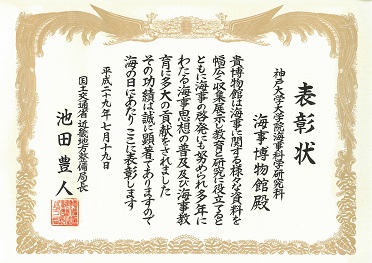 表彰状
神戸大学大学院海事科学研究科
海事博物館殿
貴博物館は海事に関する様々な資料を
幅広く収集展示し教育と研究に役立てると
ともに海事の啓発にも努められ多年に
わたる海事思想の普及及び海事教
育に多大の貢献をされました
その功績は誠に顕著でありますので
海の日にあたりここに表彰します
平成二十九年七月十九日
国土交通省近畿地方整備局長
池田豊人